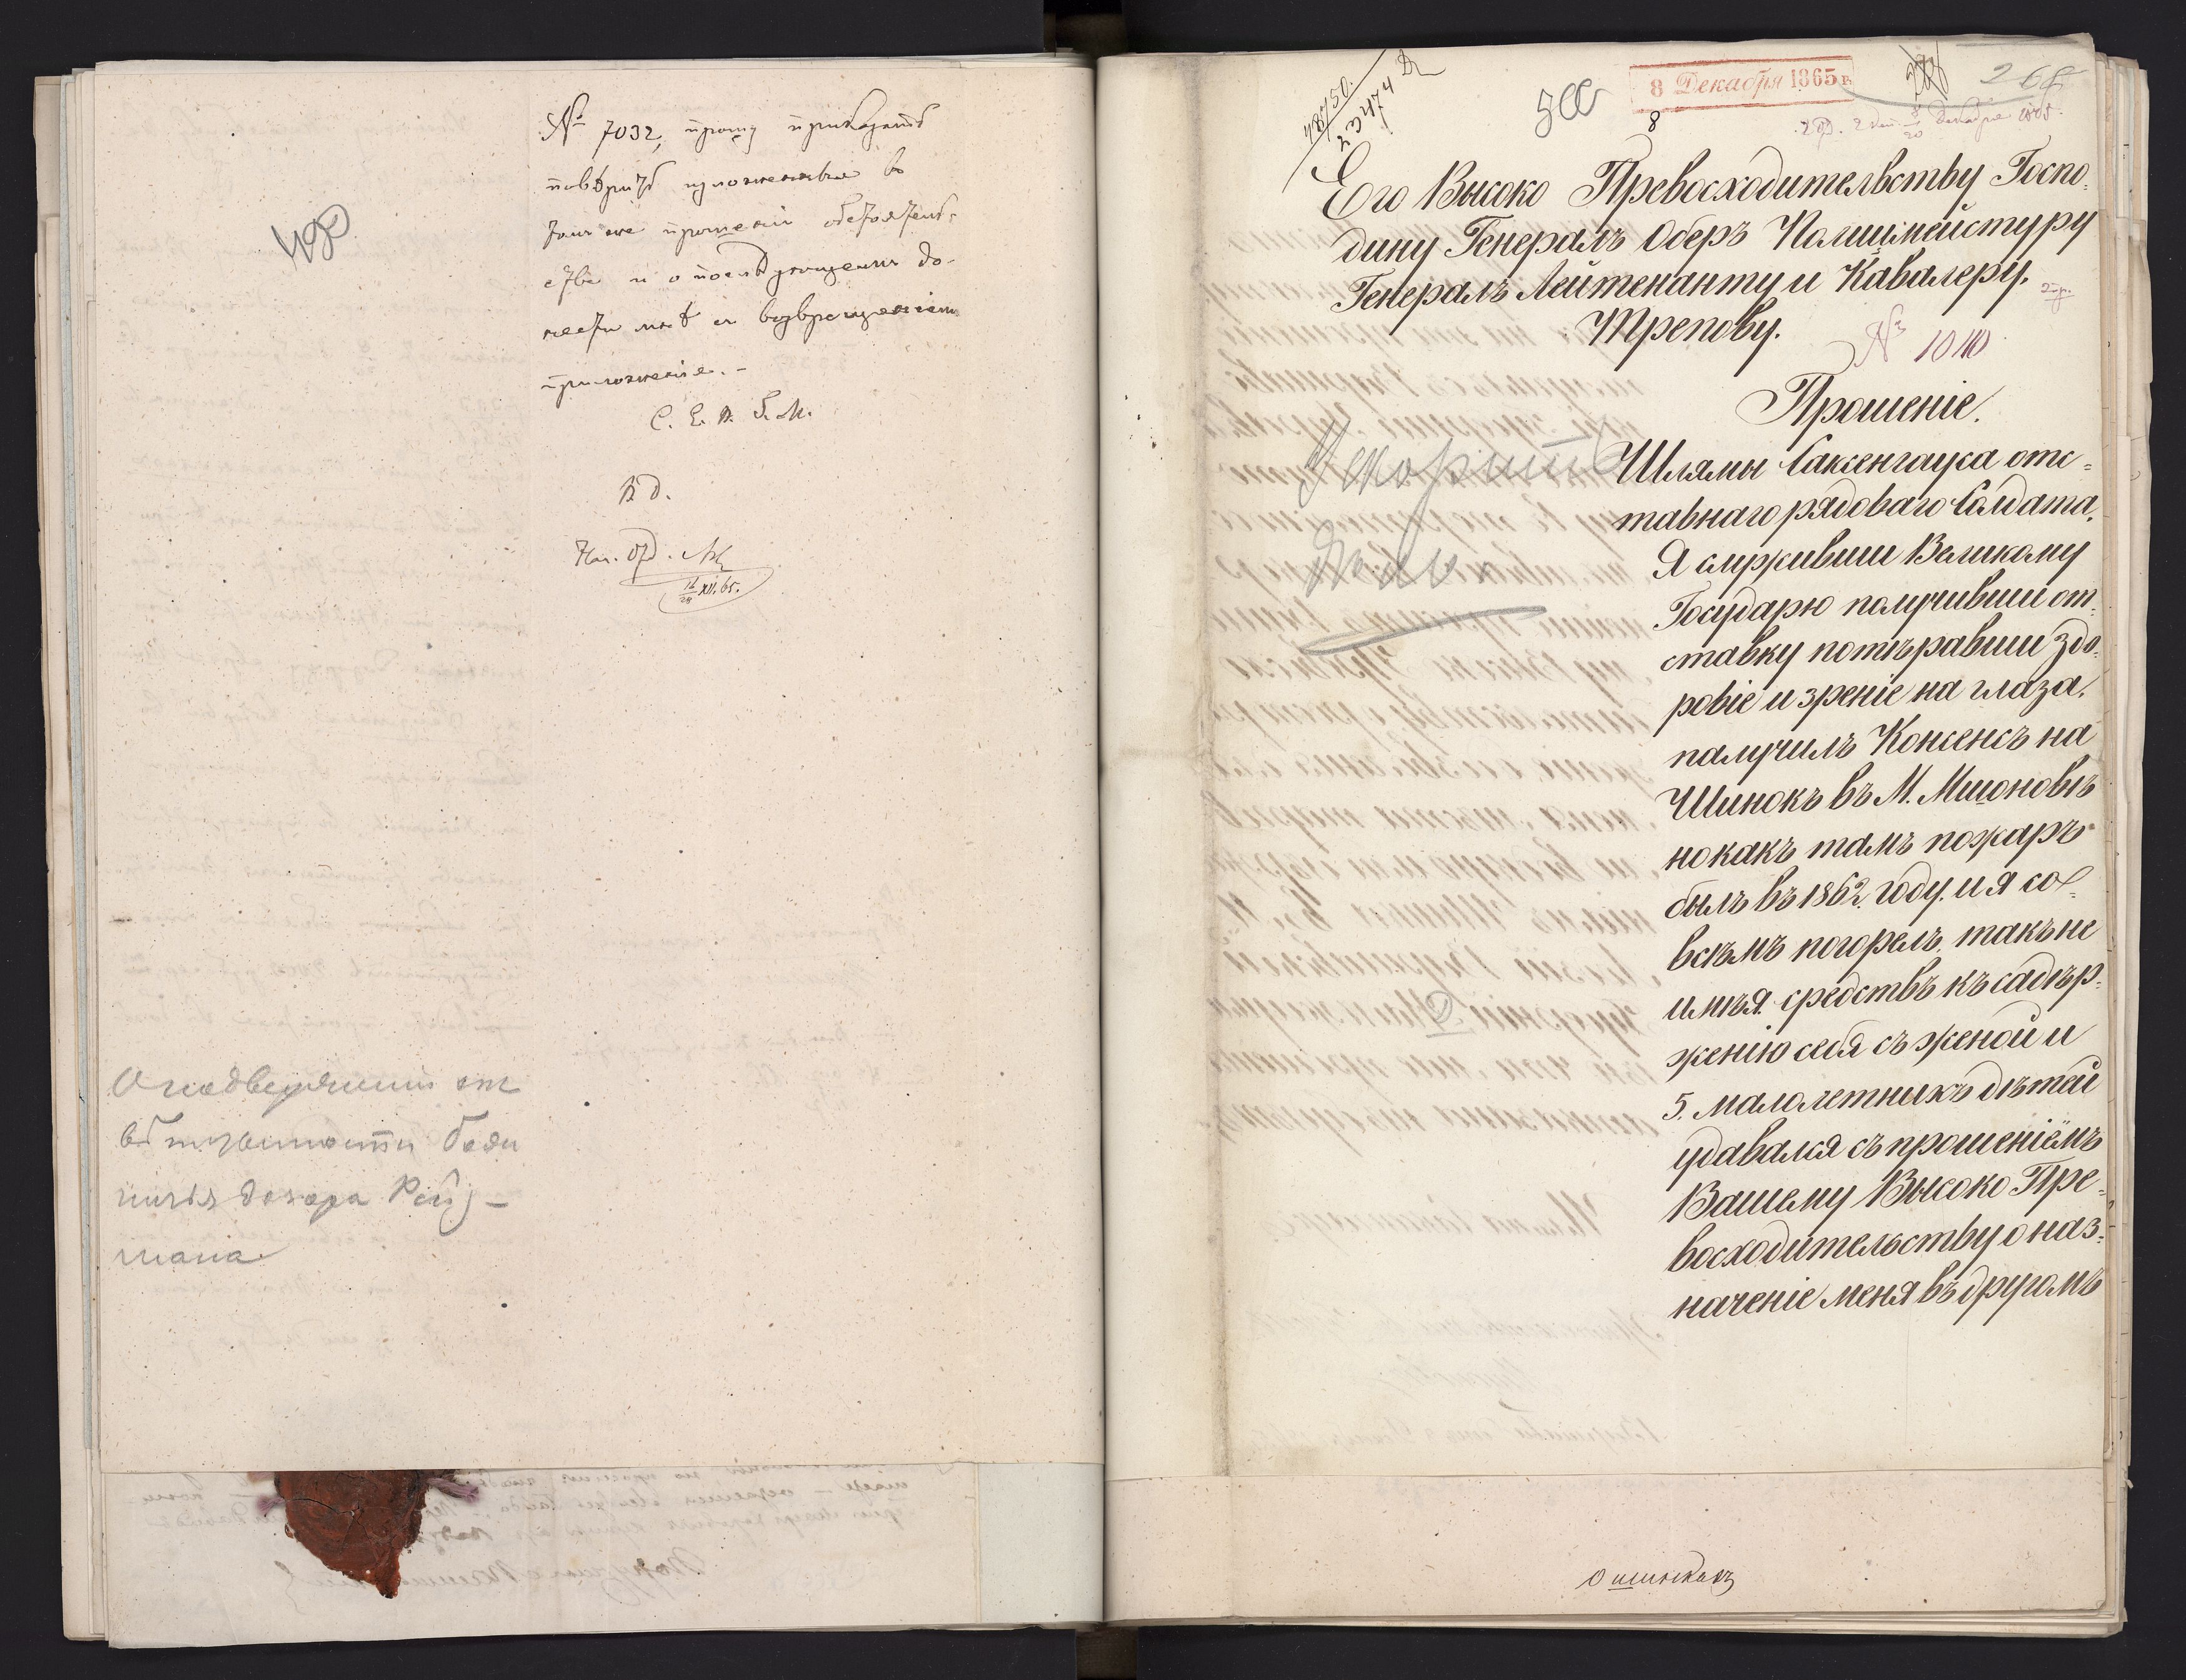 № 7032, прошу приказать
повѣрить изложенныя въ
томъ же прошеніи обстоятель-
ства и о послѣдующемъ до-
нести мнѣ съ возвращеніемъ
приложенія. -
С. Е. В. Б. М.
В д.
Нач. Отд.
16/28 XII. 65.
дозора
мана
48750.
23474
8 Декабря 1865 г.
8
268
Декабря 1865.
Его Высоко Превосходительству Госпо-
дину Генералъ Оберъ Полицмейстуру
Генералъ Лейтенанту и Кавалеру.
Трепову.
№ 10110
Прошеніе.
Ускорить
Шлямы Саксенгауза отс-
тавнаго рядоваго Солдата.
Я служивши Великому
Государю получивши от-
ставку потѣравши здо-
ровіе и зреніе на глаза,
палучилъ Консенсъ на
Шинокъ въ М. Мшоновѣ
но какъ тамъ пожаръ
былъ въ 1862 году. и я со-
всѣмъ погорелъ, такъ не
имѣя средствъ къ садѣр-
женію себя съ женой и
5. малолетныхъ дѣтей
удавался съ прошеніемъ
Вашему Высоко Пре-
восходительству о наз-
наченіе меня въ другомъ
О шинкахъ